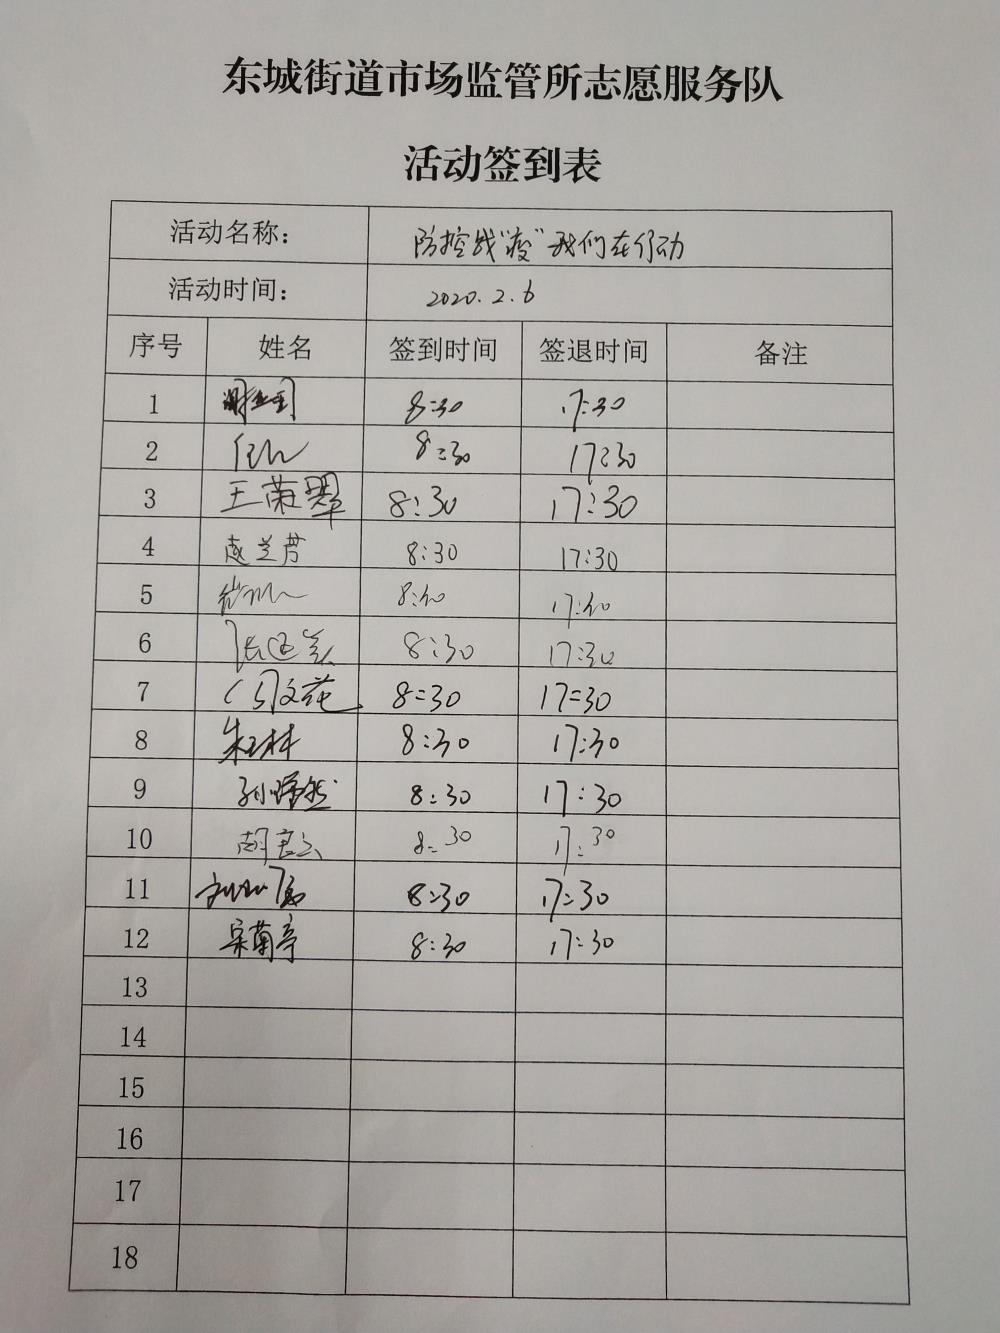 东城街道市场监管所志愿服务队
活动签到表
活动名称： 防控战“疫”我们在行动
活动时间： 2020.2.6
序号 姓名 签到时间 签退时间 备注
1 8:30 17:30
2 8:30 17:30
3 王荣翠 8:30 17:30
4 赵兰芳 8:30 17:30
5 8:30 17:30
6 8:30 17:30
7 8:30 17:30
8 朱玉林 8:30 17:30
9 8:30 17:30
10 8:30 17:30
11 8:30 17:30
12 8:30 17:30
13
14
15
16
17
18